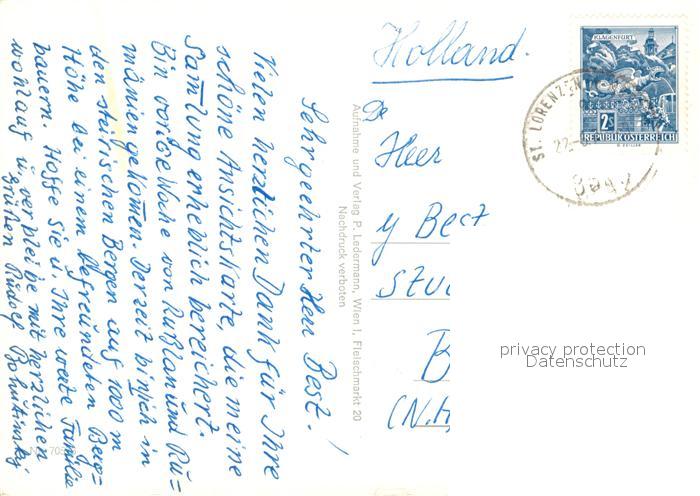 Sehr geehrter Herr Best!
Vielen herzlichen Dank für Ihre
schöne Ansichtskarte, die meine
Samlung erheblich bereichert.
Bin vorige Woche von Rußland und Ru=
mänien gekommen. Derzeit bin ich in
den steirischen Bergen auf 1000 m
Höhe bei einem befreundeten Berg=
bauern. Hoffe Sie u. Ihre werte Familie
wohlauf u. verbleibe mit herzlichen
grüßen Rudolf
Aufnahme und Verlag P. Ledermann, Wien I, Fleischmarkt 20
Nachdruck verboten
Holland.
De
Heer
y Best
KLAGENFURT
2S
REPUBLIK ÖSTERREICH
ST. LORENZEN
privacy protection
Datenschutz